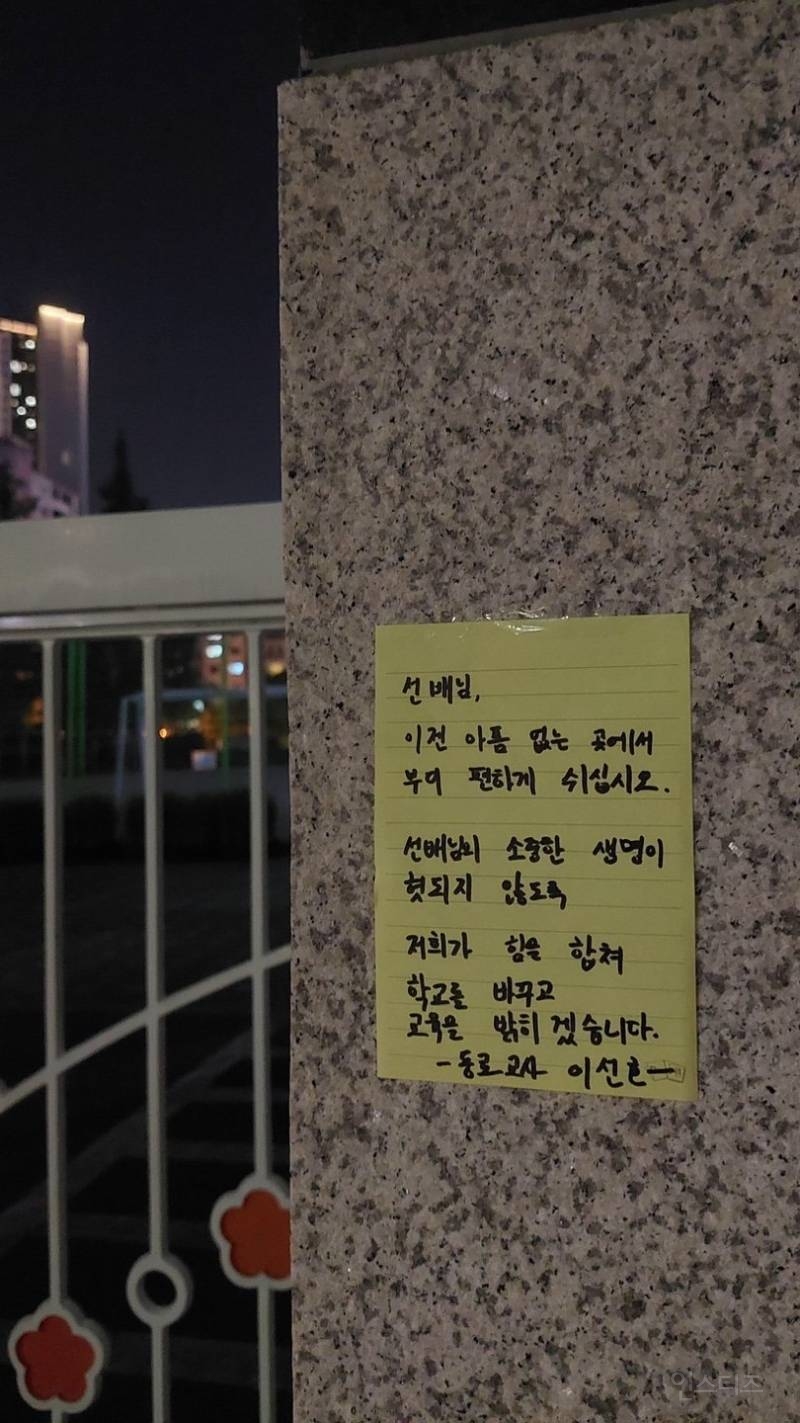 선배님,
이젠 아픔 없는 곳에서
부디 편하게 쉬십시오.
선배님의 소중한 생명이
헛되지 않도록
저희가 힘을 합쳐
학교를 바꾸고
교육을 밝히겠습니다.
-동료교사 이선호-
인스티즈